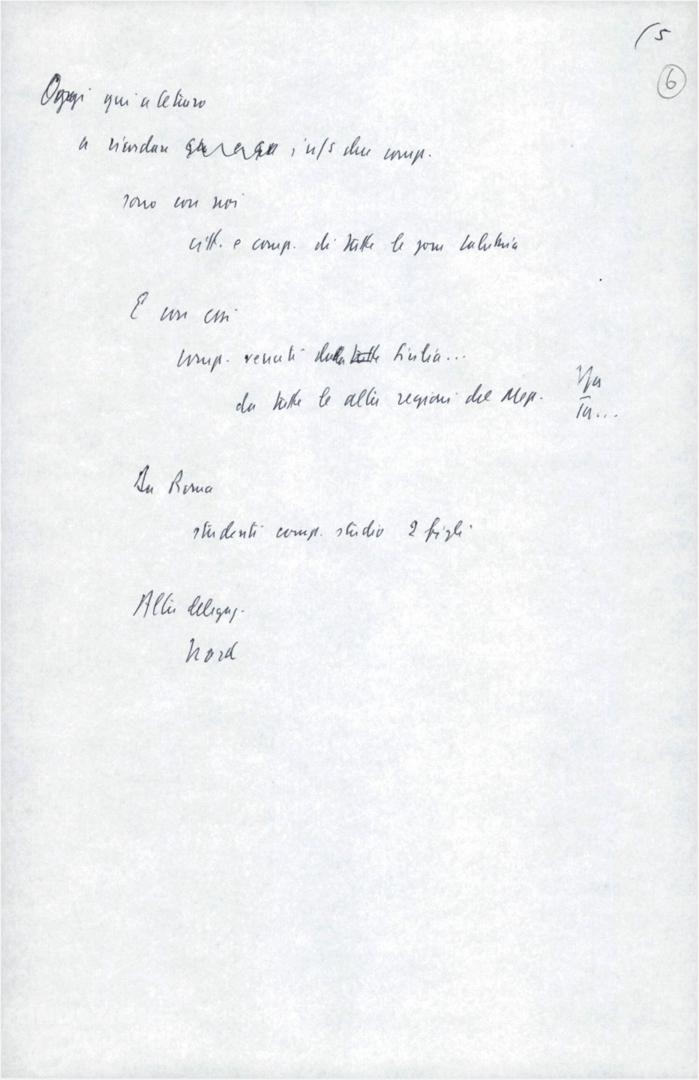 (5
6
Oggi qui a Cetraro
a ricordare i n/s due comp.
sono con noi
citt. e comp. di tutte le zone Calabria
E con essi
comp. venuti dalla Sicilia...
da tutte le altre regioni del Mezz.
Da Roma
studenti comp. studio 2 figli
Altre delegaz.
Nord